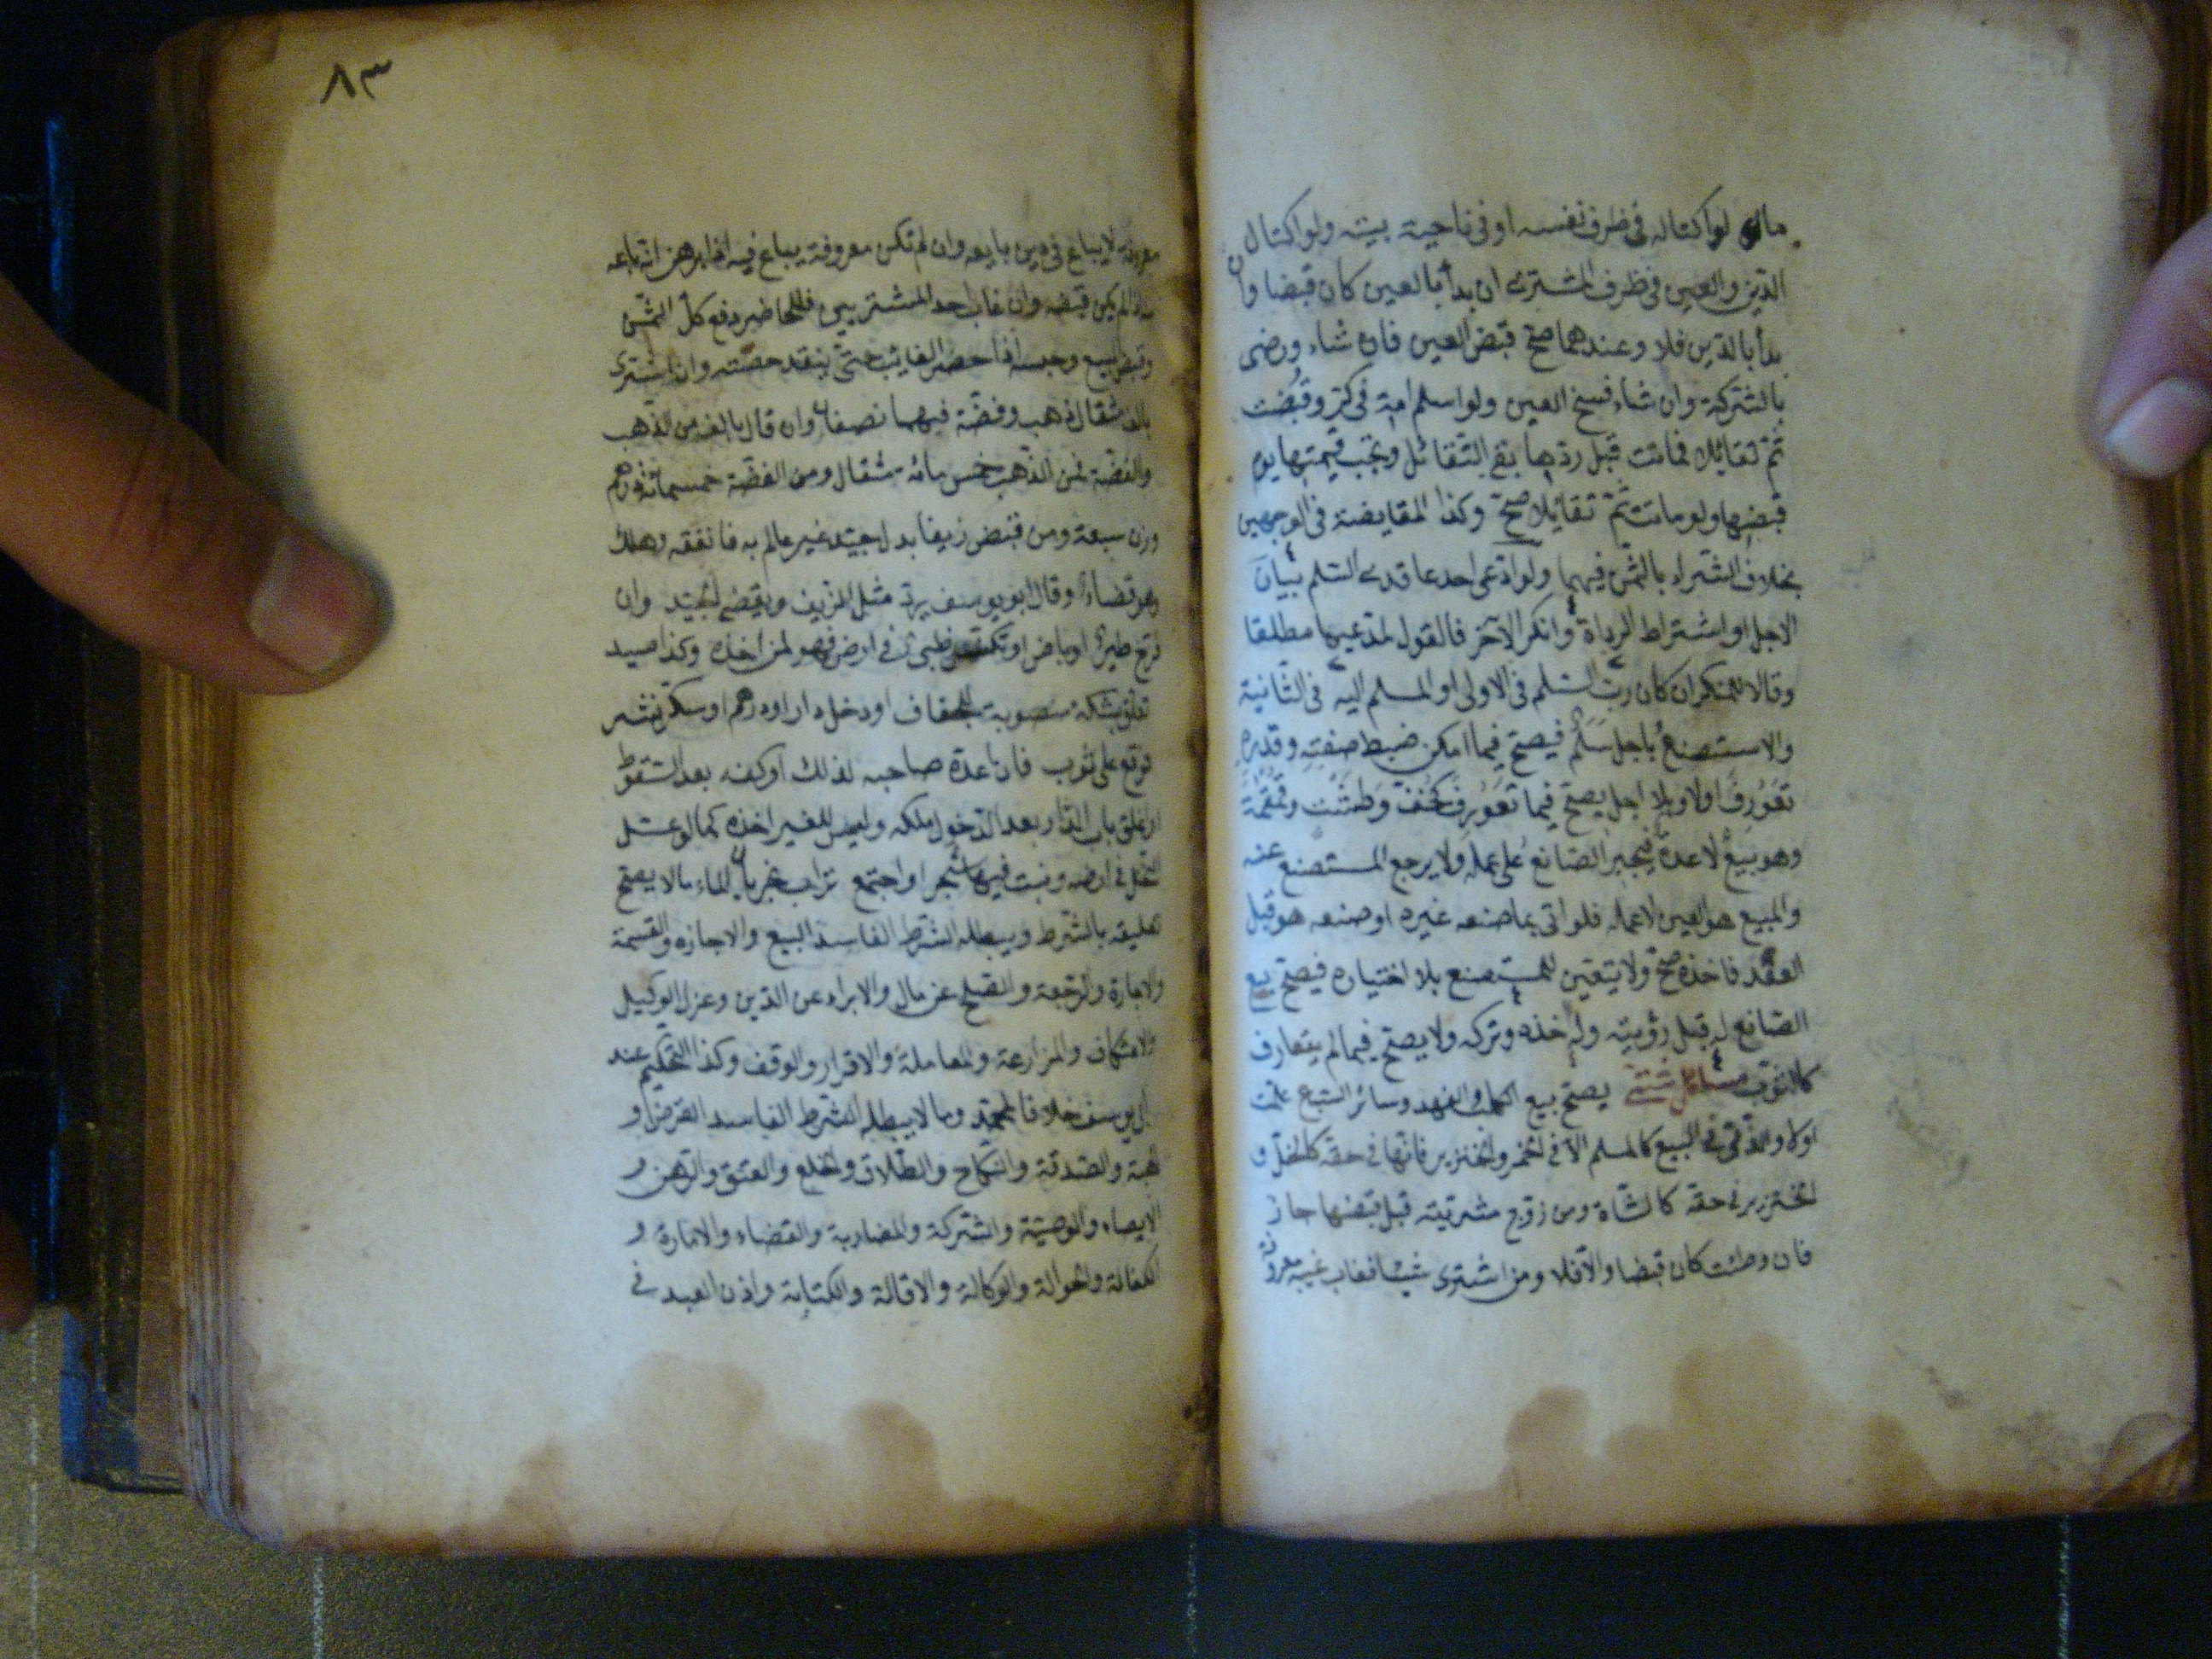 ما لو اكتاله فى ظرف نفسه او فى ناحية بيته ولو اكتال
الدين والعين فى ظرف المشترى ان بدأ بالعين كان قبضا وان
بدأ بالدين فلا وعندهما صح قبض العين فان شاء رضى
بالشركة وان شاء فسخ العين ولو اسلم امة فى كر وقبضت
ثم تقائلا فماتت قبل ردها بقى التقائل وتجب قيمتها يوم
قبضها ولو ماتت ثم تقائلا صح وكذا المقايضة فى الوجهين
بخلاف الشراء بالثمن فيهما ولو ادعى احد عاقدى السلم بيان
الاجل او اشتراط الرداة وانكر الآخر فالقول لمدعيهما مطلقا
وقالا للمنكر ان كان رب السلم فى الاولى او المسلم اليه فى الثانية
والاستصنع باجل سلم فيصح فيما امكن ضبط صفته وقدره
تعورف اولا وبلا اجل يصح فيما تعورف كخف وطشت وقمقمة
وهو بيع لا عدة فيجبر الصانع على عمله ولا يرجع المستصنع عنه
والمبيع هو العين لا عمله فلو اتى بما صنعه غيره او صنعه هو قبل
العقد فاخذه صح ولا يتعين للمستصنع بلا اختياره فيصح بيع
الصانع له قبل رؤيته وله اخذه وتركه ولا يصح فيما لم يتعارف
كالثوب مسائل شتى يصح بيع الكلب والفهد وسائر السبع علمت
اولا والذمى فى البيع كالمسلم الا فى الخمر والخنزير فانها فى حقه كالخل و
الخنزير فى حقه كالشاة ومن زوج مشريته قبل قبضها جاز
فان وطئت كان قبضا والا فلا ومن اشترى شيئا فغاب غيبة معروفة
٨٣
معروفة لا يباع فى دين بايعه وان لم تكن معروفة يباع فيه اذا برهن انه باعه
لم يكن قبضه وان غاب احد المشتريين فللحاضر دفع كل الثمن
وقبض المبيع وحبسه اذا حضر الغايب حتى ينقد حصته وان اشترى
بالف مثقال ذهب وفضة فيهما نصفان وان قال بالف من الذهب
والفضة فمن الذهب خمس مائة مثقال ومن الفضة خمسمائة درهم
وزن سبعة ومن قبض زيفا بدل جيد غير عالم به فانفقه وهلك
وهو قضاء وقال ابو يوسف يرد مثل الزيف ويقتضى الجيد وان
فرخ طير او باض او تكسر ظبى فى ارض فهو لمن اخذه وكذا صيد
تعلق بشبكة منصوبة للجفاف او دخل دارا ودرهم او سكر نثر
فوقع على ثوب فان اعده صاحبه لذلك او كفه بعد السقوط
او اغلق باب الدار بعد الدخول ملكه وليس للغير اخذه كما لو عسل
النحل فى ارضه ونبت فيها شجر او اجتمع تراب بجريان الماء ما لا يصح
تعليقه بالشرط ويبطله الشرط الفاسد البيع والاجازه والقسمة
والاجارة والرجعة والصلح عن مال والابراء عن الدين وعزل الوكيل
والاعتكاف والمزارعة والمعاملة والاقرار والوقف وكذا التحكيم عند
ابى يوسف خلافا لمحمد وما لا يبطله الشرط الفاسد القرض و
الهبة والصدقة والنكاح والطلاق والخلع والعتق والرهن و
الايصاء والوصية والشركة والمضاربة والقضاء والامارة و
الكفالة والحوالة والوكالة والاقالة والكتابة واذن العبد فى